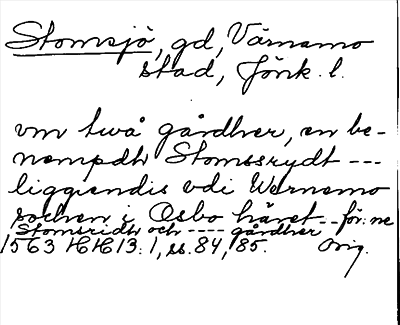 Stomsjö, gd, Värnamo
stad, Jönk. l.
vm twå gårdher, en be-
nempdh Stomssrydt ---
liggiendis vdi Wernamo
sochen i Osbo häret -- för: ne
Stomsridh och ---- gårdher
1563 HH 13:1, ss. 84, 85. Orig.